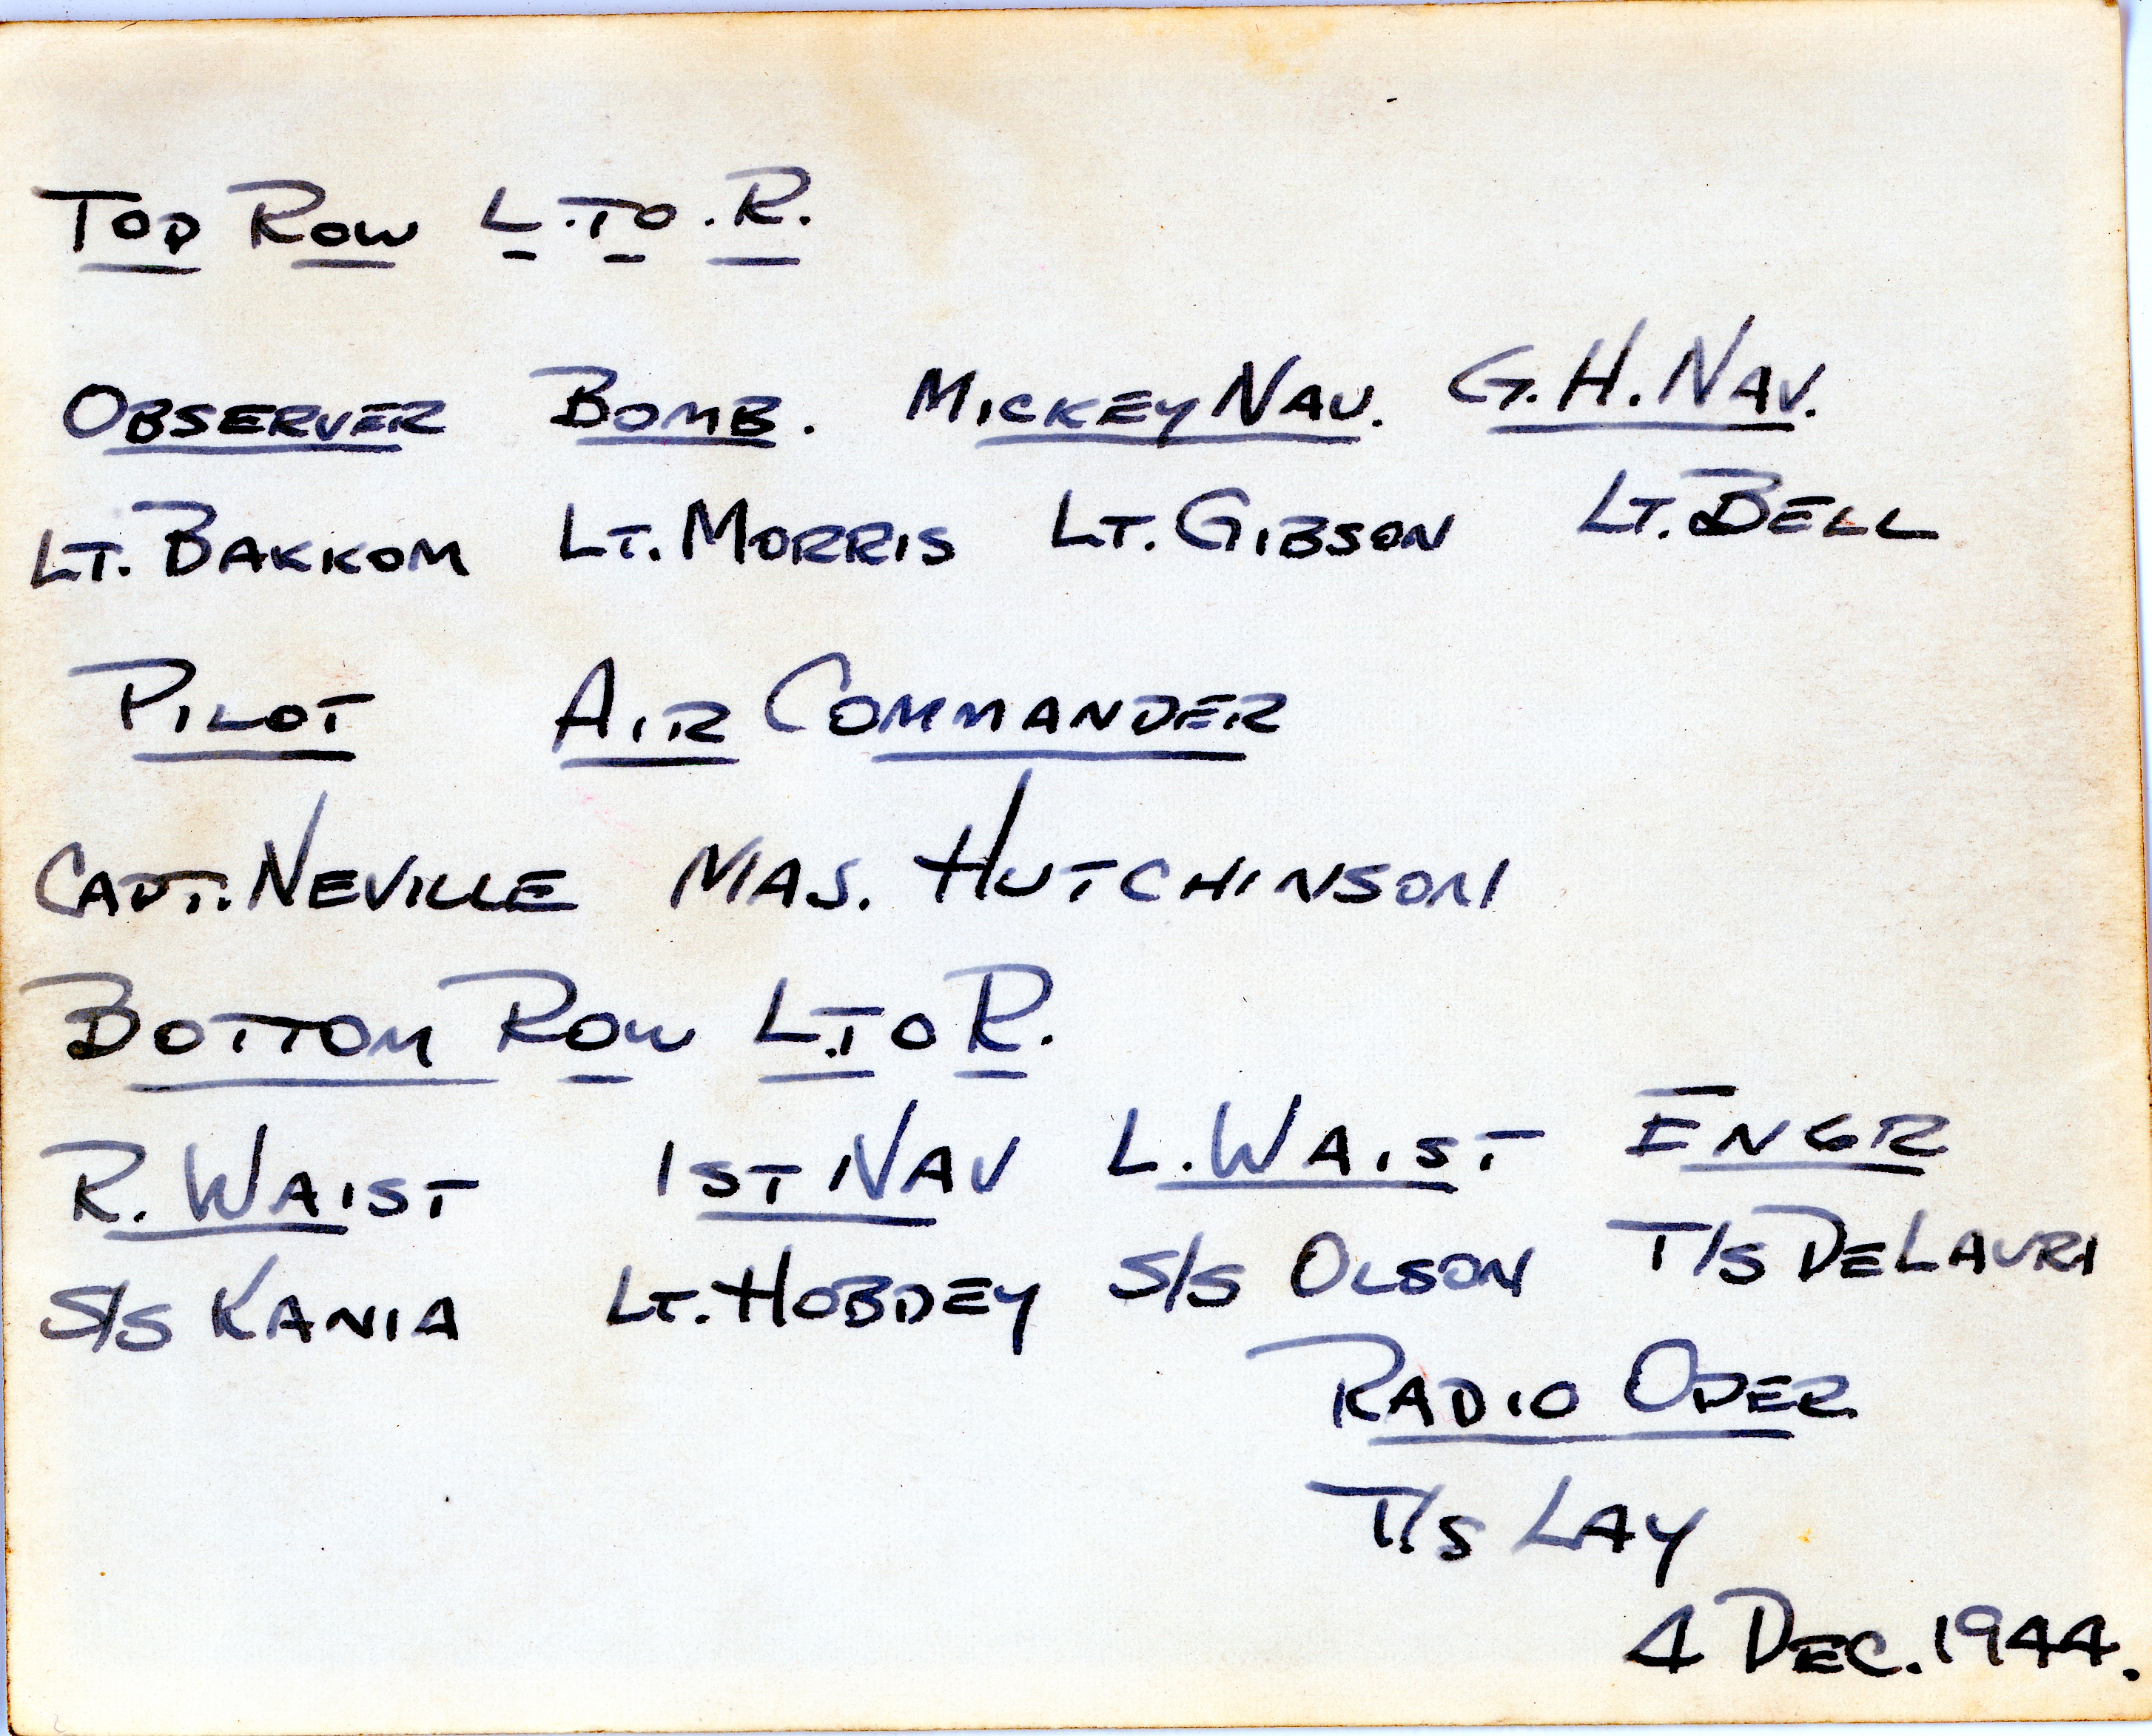 TOP ROW L. TO. R.
OBSERVER BOMB. MICKEY NAV. G.H. NAV.
LT. BAKKOM LT. MORRIS LT. GIBSON LT. BELL
PILOT AIR COMMANDER
CAPT. NEVILLE MAJ. HUTCHINSON
BOTTOM ROW L. TO R.
R. WAIST 1ST NAV L. WAIST ENGR
S/S KANIA LT. HOBDEY S/S OLSON T/S DELAURI
RADIO OPER
T/S LAY
4 DEC. 1944.